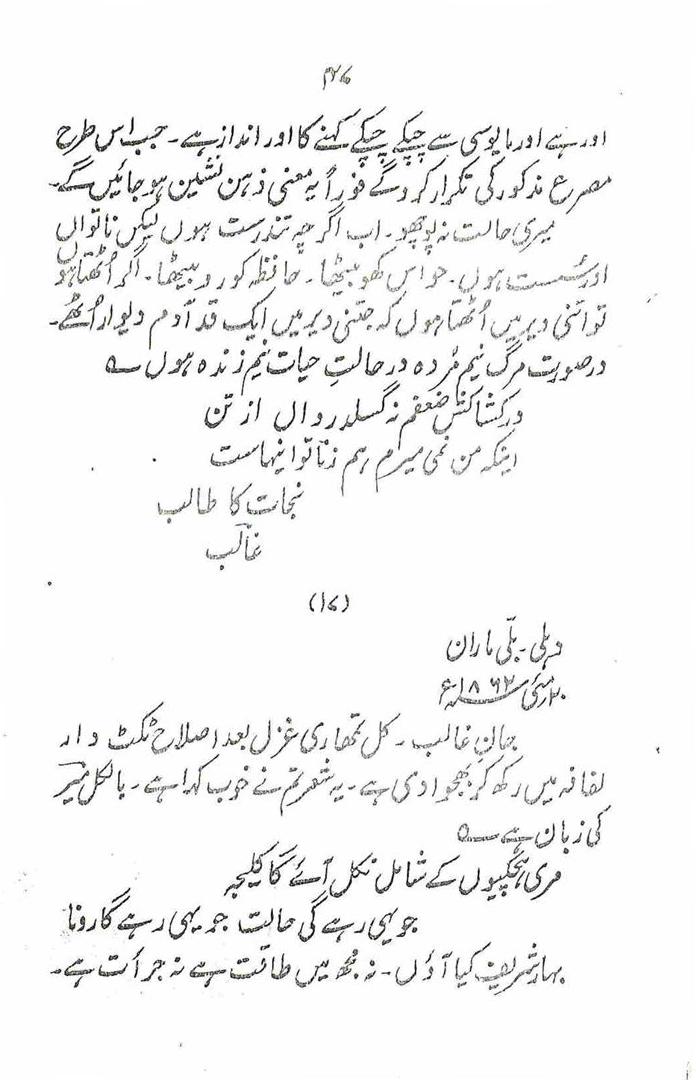 ۴۲۷
اور ہے اور مایوسی سے چپکے چپکے کہنے کا اور انداز ہے۔ جب اس طرح
مصرع مذکور کی تکرار کرو گے فوراً یہ معنی ذہن نشین ہو جائیں گے۔
میری حالت نہ پوچھو۔ اب اگرچہ تندرست ہوں لیکن ناتواں
اور سُست ہوں۔ حواس کھو بیٹھا۔ حافظہ کو رو بیٹھا۔ اگر اُٹھتا ہوں
تو اتنی دیر میں اُٹھتا ہوں کہ جتنی دیر میں ایک قد آدم دیوار اُٹھے۔
در صورت مرگ نیم مُردہ در حالتِ حیات نیم زندہ ہوں ؎
در کشاکش ضعفم نہ گسلد رواں از تن
اینکہ من نمی میرم ہم ز ناتوانیہاست
نجات کا طالب
غالب
(۱۷)
دہلی۔ بلّی ماران
۲۰ مئی ۱۸۶۲ء
جانِ غالب۔ کل تمھاری غزل بعد اصلاح ٹکٹ دار
لفافہ میں رکھ کر بھجوا دی ہے۔ یہ شعر تم نے خوب کہا ہے۔ بالکل میر
کی زبان ہے ؎
مری ہچکیوں کے شامل نکل آئے گا کلیجہ
جو یہی رہے گی حالت جو یہی رہے گا رونا
بہار شریف کیا آؤں۔ نہ مجھ میں طاقت ہے نہ جرأت ہے۔